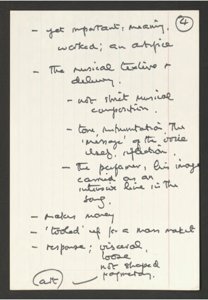 4
- yet important; meaning,
worked; an artifice
- The musical texture &
delivery.
- not strict musical
composition.
- tone, intonation. The
'message' of the voice
itself, inflection
- the performer, his image
carried on an
intensive line in the
song.
- makes money
- 'tooled' up for a mass market
- response; visceral
loose
not shaped